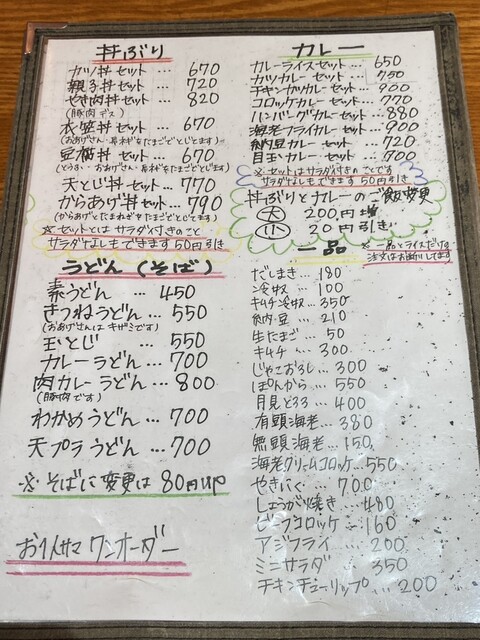 丼ぶり
カツ丼セット … 670
親子丼セット … 720
やき肉丼セット … 820
(豚肉デス)
衣笠丼セット … 670
(おあげさん・青ネギをたまごでとじます)
豆腐丼セット … 670
天とじ丼セット … 770
からあげ丼セット … 790
(からあげとたまねぎをたまごでとじます)
※セットとはサラダ付きのこと
サラダなしもできます 50円引き
うどん(そば)
素うどん … 450
きつねうどん … 550
(おあげさんはキザミです)
玉とじ … 550
カレーうどん … 700
肉カレーうどん … 800
(豚肉です)
わかめうどん … 700
天プラうどん … 700
※そばに変更は 80円up
お1人サマワンオーダー
カレー
カレーライスセット … 650
カツカレーセット … 750
チキンカツカレーセット … 900
コロッケカレーセット … 770
ハンバーグカレーセット … 880
海老フライカレーセット … 900
納豆カレーセット … 720
目玉カレーセット … 700
※セットはサラダ付きのことです
サラダなしもできます 50円引き
丼ぶりとカレーのご飯変更
大 200円増
小 20円引き
一品
※一品とライスだけの
注文はお断りしてます
だしまき … 180
冷奴 … 100
キムチ冷奴 … 350
納豆 … 210
生たまご … 50
キムチ … 300
じゃこおろし … 300
ぽんから … 550
月見とろろ … 400
有頭海老 … 380
無頭海老 … 150
海老クリームコロッケ … 550
やきにく … 700
しょうが焼き … 480
ビーフコロッケ … 160
アジフライ … 200
ミニサラダ … 350
チキンチューリップ … 200